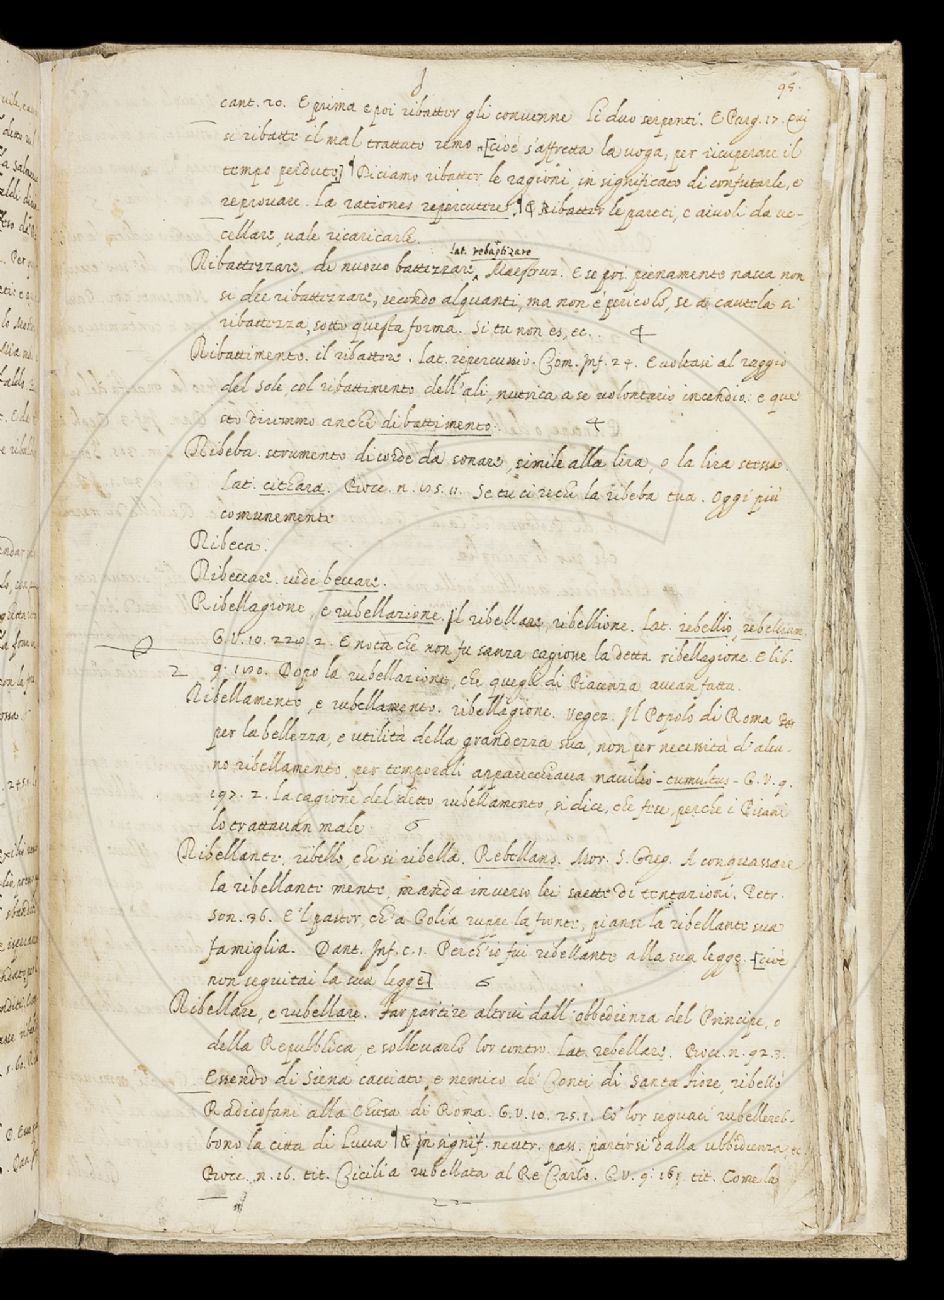 95.
cant. 20. E prima e poi ribatter gli convenne Li duo serpenti. E Purg. 17. Qui
si ribatte il mal trattato remo [cioè s'affretta la voga, per ricuperare il
tempo perduto] ¶ Diciamo ribatter le ragioni, in significato di confutarle, e
reprovare. La rationes repercutere, ¶ & Ribatter le pareti, e aivoli da uc-
cellare, vale ricaricarle.
Lat. rebaptizare
Ribattezzare. di nuovo battezzare, Maestruz. E se poi pienamente nasca non
si dee ribattezzare, secondo alquanti, ma non è pericolo, se a cautela si
ribattezza, sotto questa forma. Si tu non es, ec.
Ribattimento. il ribattere. Lat. repercussio. Com. Inf. 24. E voltasi al raggio
del Sole, col ribattimento dell'ali, nutrica a se volontario incendio: e que
sto diremmo anche dibattimento.
Ribeba. strumento di corde da sonare, simile alla lira, o la lira stessa.
Lat. cithara. Bocc. n. 85. 11. Se tu ci rechi la ribeba tua. Oggi più
comunemente
Ribeca.
Ribeccare. vedi beccare.
Ribellagione, e rubellazione. Il ribellare, ribellione. Lat. rebellio, rebellium
G.V. 10. 220. 2. E nota che non fu sanza cagione la detta ribellagione. E lib.
2 9. 180. Dopo la rubellazione, che quegli di Piacenza avean fatta.
Ribellamento, e rubellamento. ribellagione. Vegez. Il Popolo di Roma
per la bellezza, e utilità della grandezza sua, non per necessità d'alcu-
no ribellamento, per temporali apparecchiava navilio - tumultus - G.V. 9.
197. 2. La cagione del detto rubellamento, si dice, che fue, perche i Pisani
lo trattavan male
Ribellante, ribello, che si ribella. Rebellans. Mor. S. Greg. A conquassare
la ribellante mente, manda inverso lei saette di tentazioni. Petr.
Son. 36. E 'l pastor, ch'a Golia ruppe la fronte, pianse la ribellante sua
famiglia. Dant. Inf. c. 1. Perch'io fui ribellante alla sua legge. [cioè
non seguitai la sua legge]
Ribellare, e rubellare. Far partire altrui dall'obbedienza del Principe, o
della Repubblica, e sollevarlo lor contro. Lat. rebellare. Bocc. n. 92. 3.
Essendo di Siena cacciato, e nemico de' Conti di Santa Fiore, ribellò
Radicofani alla Chiesa di Roma. G.V. 10. 25. 1. Co' lor seguaci rubellereb-
bono la città di Lucca ¶ & In signif. neutr. pass. partirsi dalla ubbidienza ec
Bocc. n. 16. tit. Cicilia rubellata al Re Carlo. G.V. 9. 165. tit. Come la